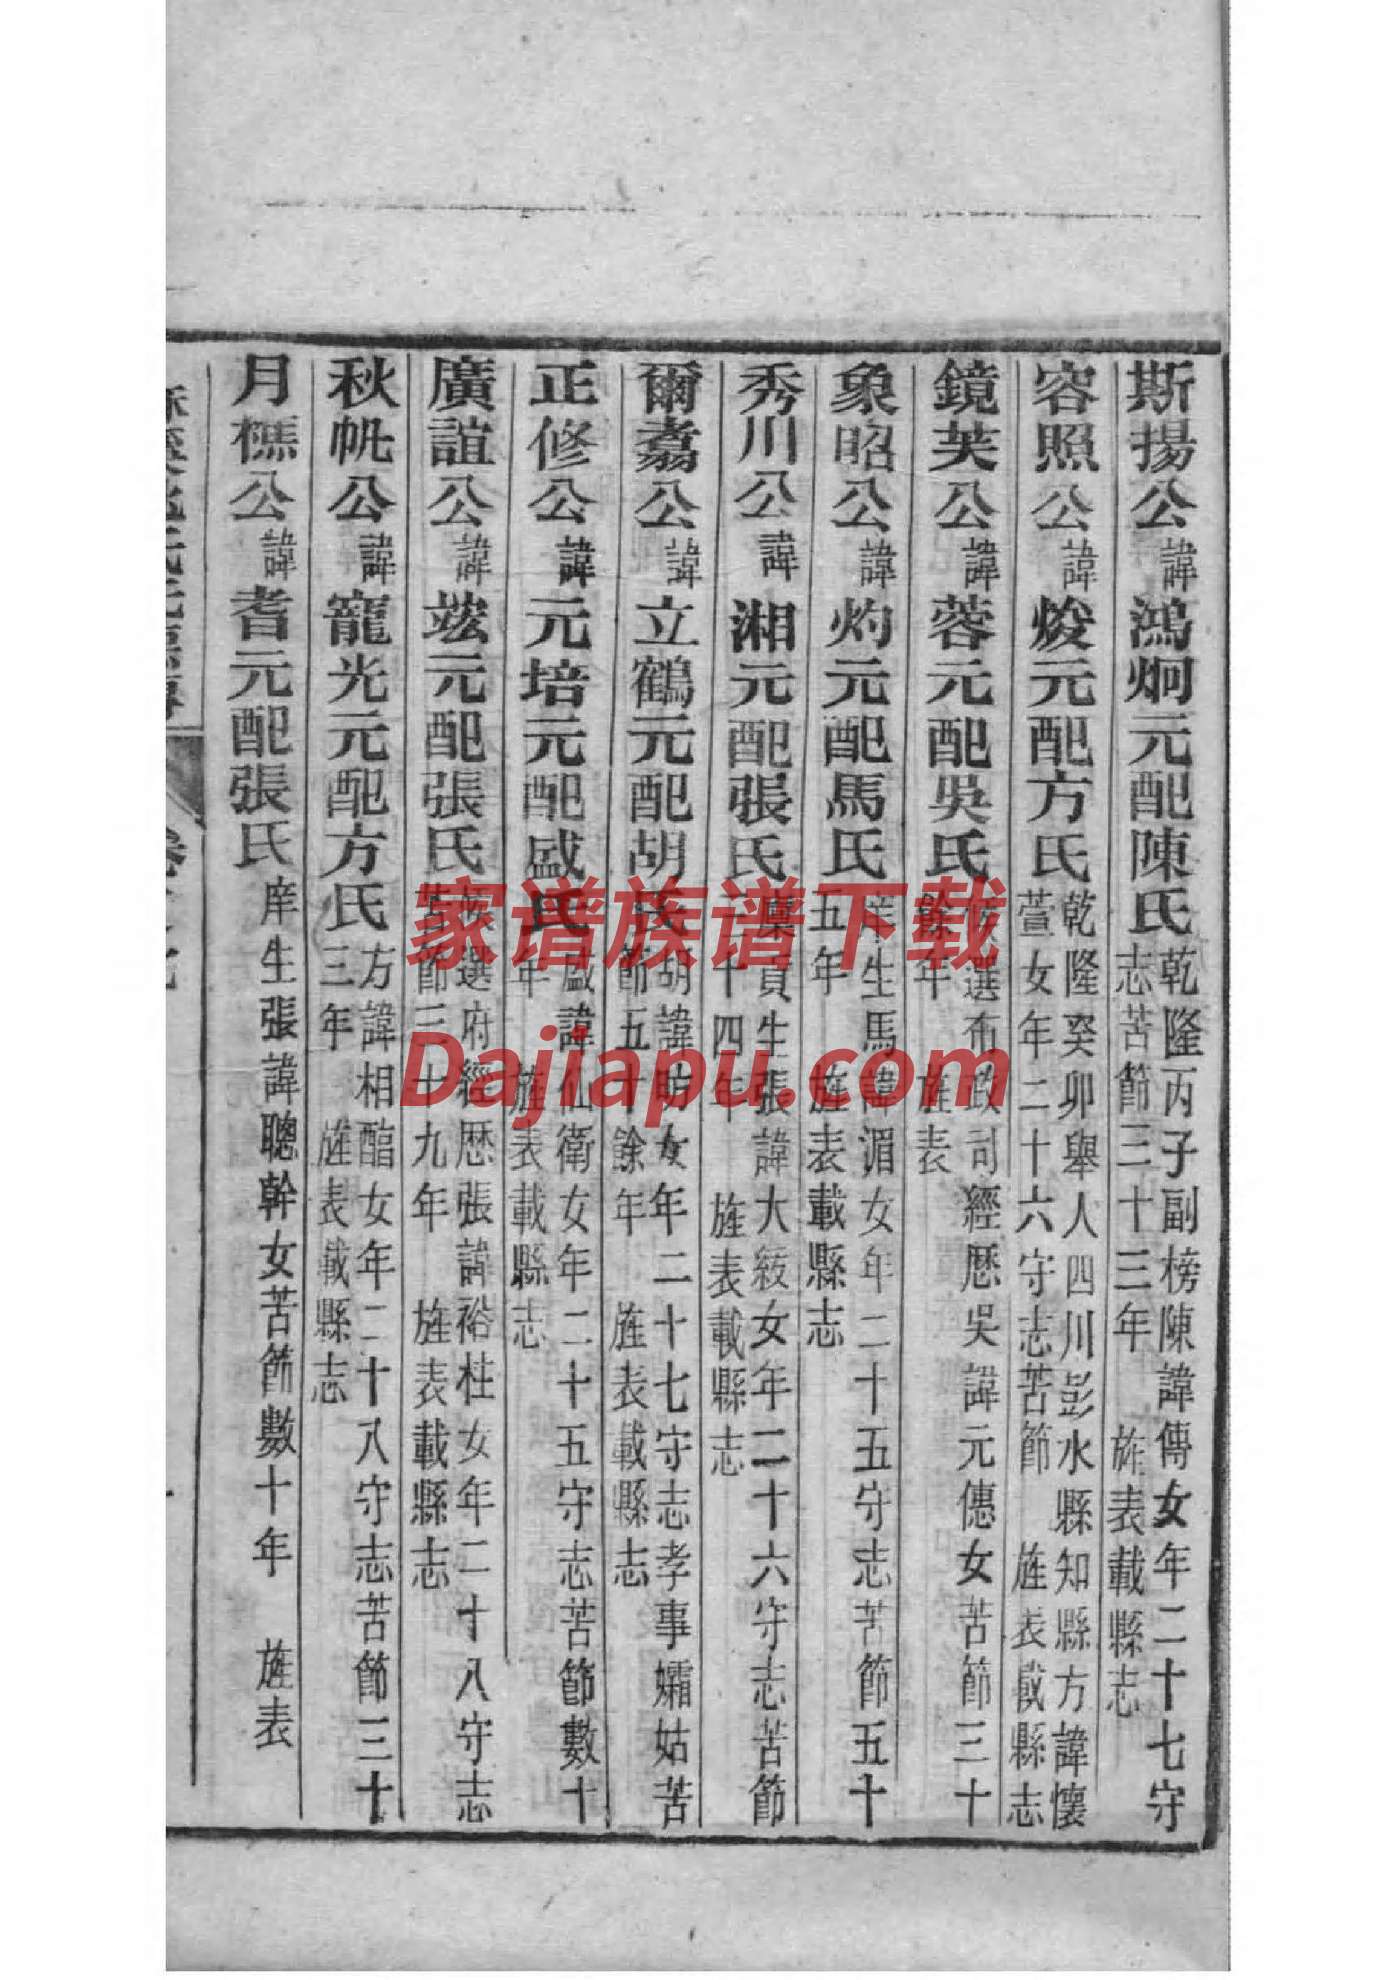 斯揚公諱鴻炯元配陳氏乾隆丙子副榜陳諱傳女年二十七守
志苦節三十三年 旌表載縣志
容照公諱焌元配方氏乾隆癸卯舉人四川彭水縣知縣方諱懷
萱女年二十六守志苦節 旌表載縣志
鏡芙公諱蓉元配吳氏候選布政司經歷吳諱元僡女苦節三十
餘年 旌表
象昭公諱灼元配馬氏庠生馬諱湄女年二十五守志苦節五十
五年 旌表載縣志
秀川公諱湘元配張氏廩貢生張諱大綬女年二十六守志苦節
二十四年 旌表載縣志
爾翥公諱立鶴元配胡氏胡諱昉女年二十七守志孝事孀姑苦
節五十餘年 旌表載縣志
正修公諱元培元配盛氏盛諱仙衛女年二十五守志苦節數十
年 旌表載縣志
廣誼公諱竑元配張氏候選府經歷張諱裕柱女年二十八守志
苦節三十九年 旌表載縣志
秋帆公諱寵光元配方氏方諱相酯女年二十八守志苦節三十
三年 旌表載縣志
月樵公諱耆元配張氏庠生張諱聰幹女苦節數十年 旌表
家谱族谱下载
Dajiapu.com